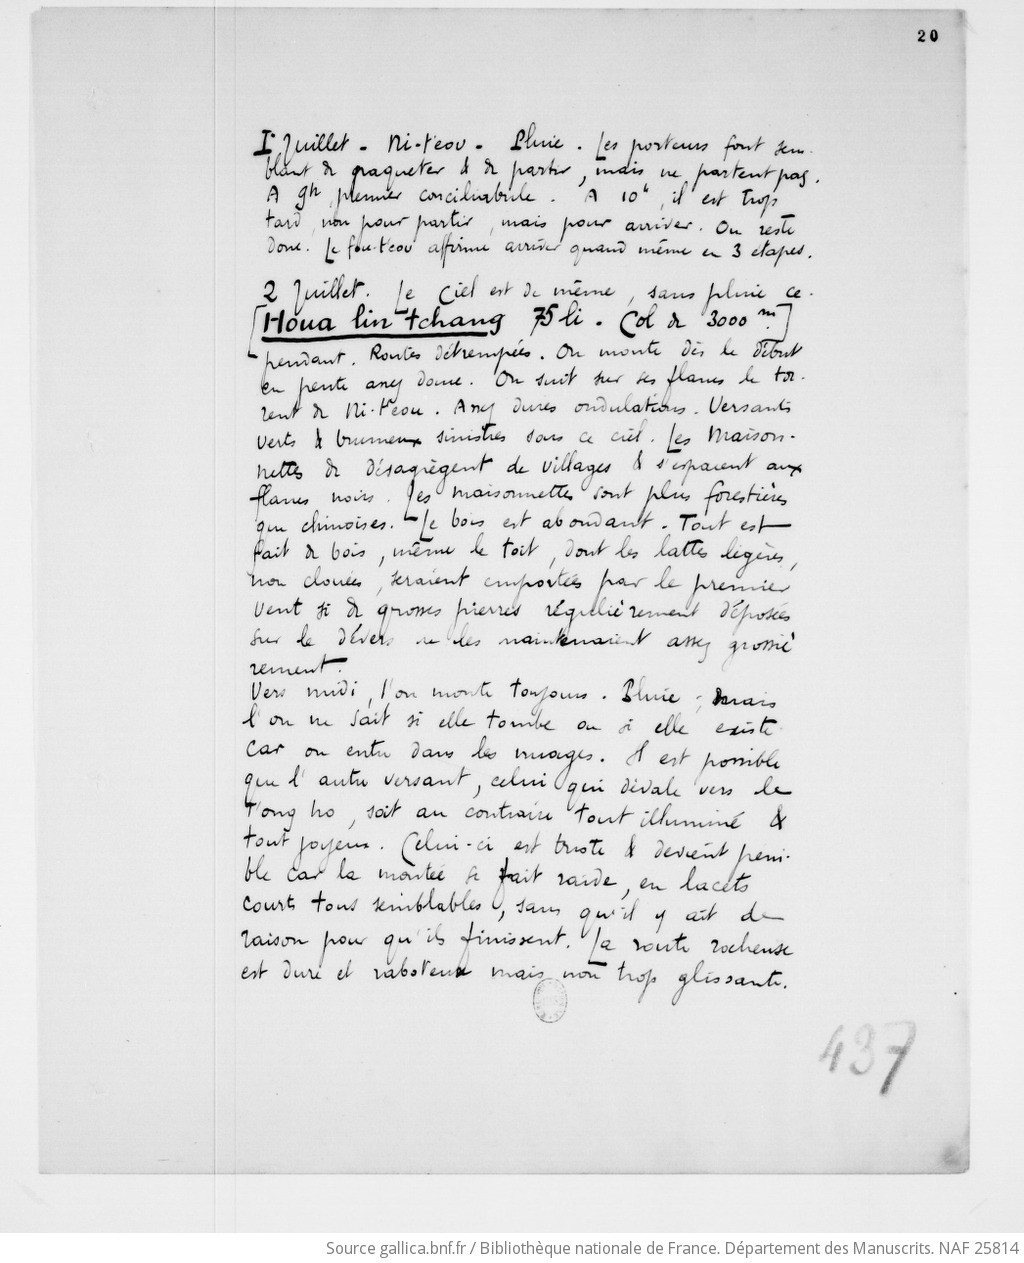 20
I' Juillet - Ni-t'eou - Pluie. Les porteurs font sem-
blant de paqueter & de partir, mais ne partent pas.
A 9h, premier conciliabule. A 10h, il est trop
tard, non pour partir, mais pour arriver. On reste
donc. Le fou-t'eou affirme arriver quand même en 3 étapes.
2 Juillet. Le Ciel est de même, sans pluie ce-
[Houa lin tchang 75 li. Col de 3000 m.]
pendant. Routes détrempées. On monte dès le début
en pente assez douce. On suit sur ses flancs le tor-
rent de Ni-t'eou. Assez dures ondulations. Versants
verts & brumeux sinistres sous ce ciel. Les Maison-
nettes se désagrègent de villages & s'espacent aux
flancs noirs. Les maisonnettes sont plus forestières
que chinoises. - Le bois est abondant. Tout est
fait de bois, même le toit, dont les lattes légères,
non clouées, seraient emportées par le premier
vent si de grosses pierres régulièrement déposées
sur le dévers ne les maintenaient assez grossiè
rement.
Vers midi, l'on monte toujours. Pluie ; mais
l'on ne sait si elle tombe ou si elle existe
car on entre dans les nuages. Il est possible
que l'autre versant, celui qui dévale vers le
T'ong ho, soit au contraire tout illuminé &
tout joyeux. Celui-ci est triste & devient péni-
ble car la montée se fait raide, en lacets
courts tous semblables, sans qu'il y ait de
raison pour qu'ils finissent. La route rocheuse
est dure et raboteuse mais non trop glissante.
437
Source gallica.bnf.fr / Bibliothèque nationale de France. Département des Manuscrits. NAF 25814